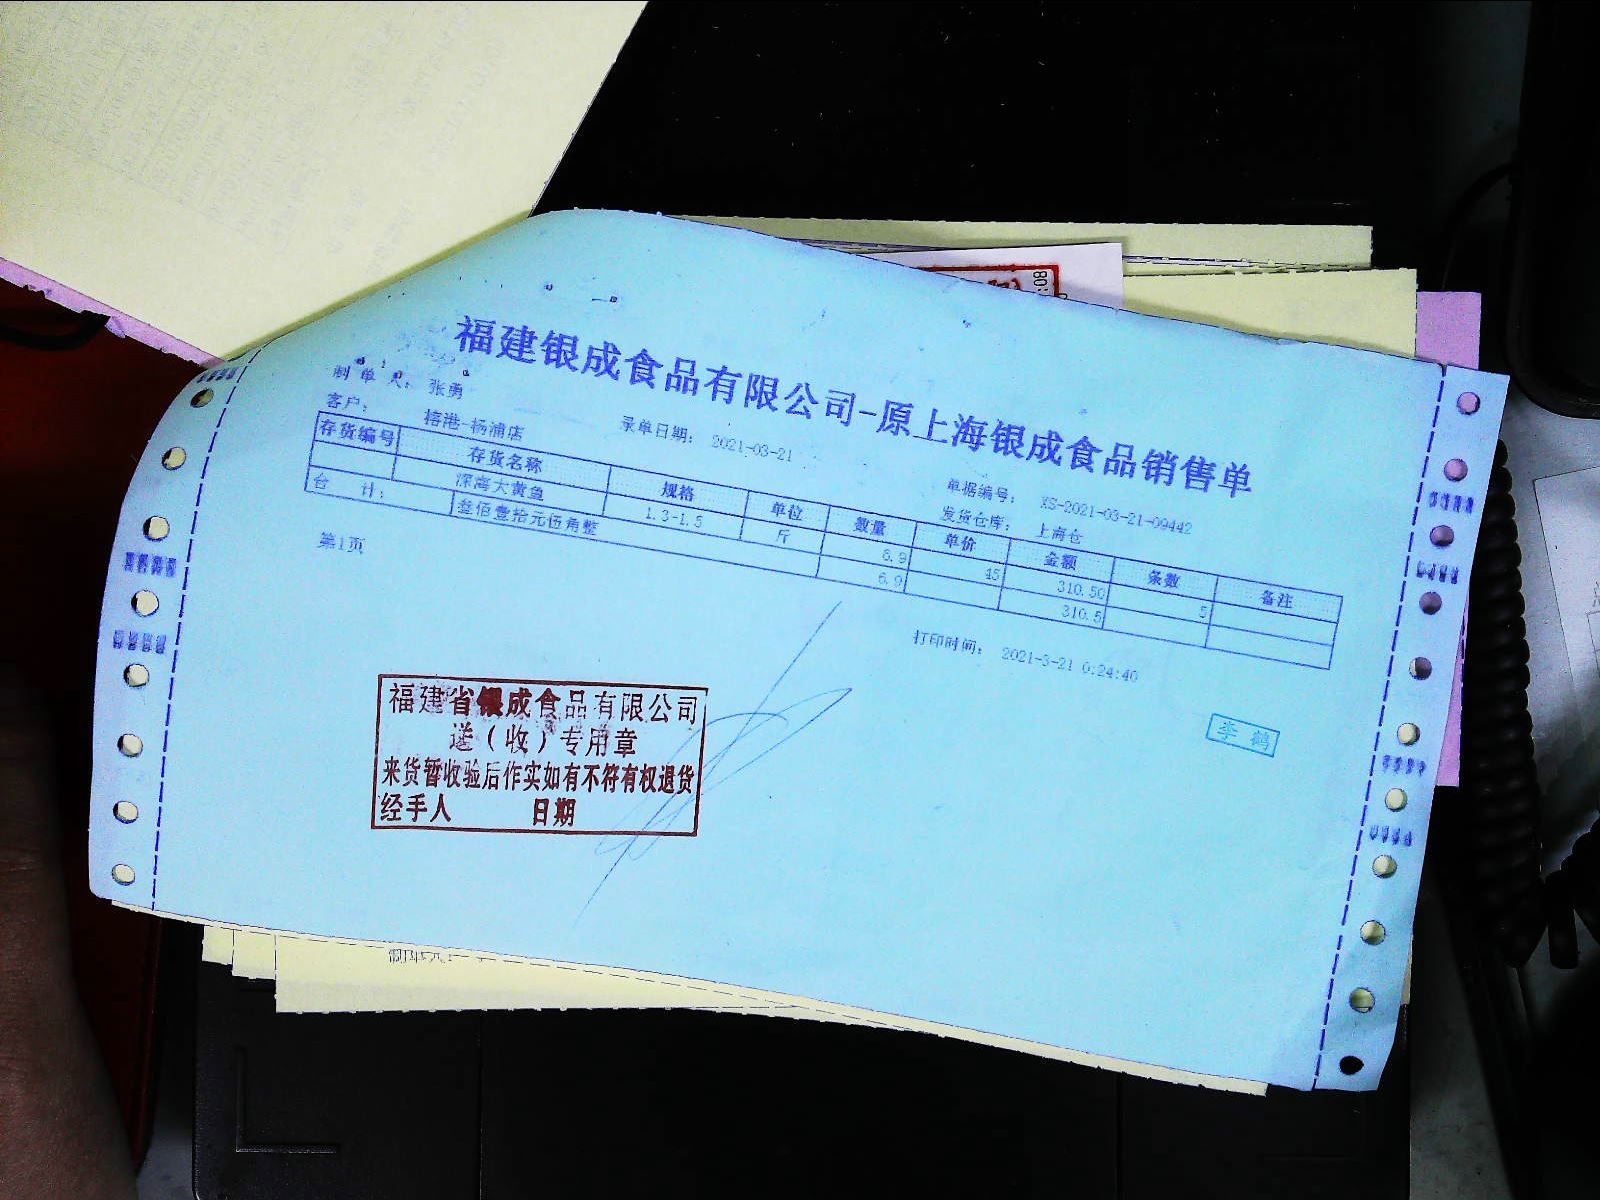 福建银成食品有限公司-原上海银成食品销售单
制单人: 张勇
客户: 榕港-杨浦店
录单日期: 2021-03-21
单据编号: XS-2021-03-21-09442
发货仓库: 上海仓
存货编号 存货名称 规格 单位 数量 单价 金额 条数 备注
深海大黄鱼 1.3-1.5 斤 6.9 45 310.50 5
合计: 叁佰壹拾元伍角整 6.9 310.5
第1页
打印时间: 2021-3-21 0:24:40
福建省银成食品有限公司
送(收)专用章
来货暂收验后作实如有不符有权退货
经手人 日期
李鹤
制单人: